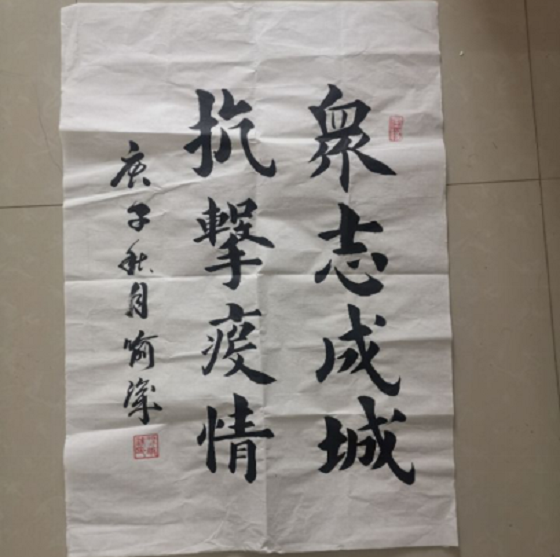 眾志成城
抗擊疫情
庚子秋月喻